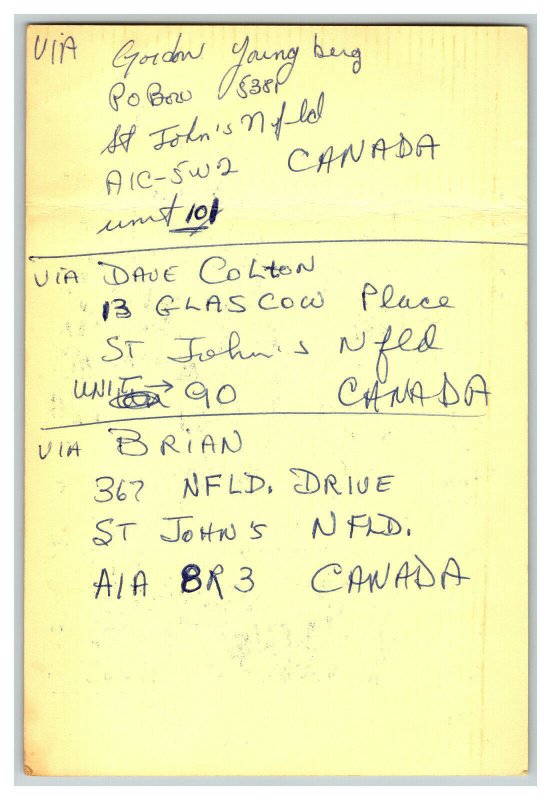 VIA Gordon Youngberg
PO Box 8381
St John's Nfld
A1C-5W2 CANADA
unit 101
VIA DAVE COLTON
13 GLASCOW Place
ST John's Nfld
UNIT → 90 CANADA
VIA BRIAN
367 NFLD. DRIVE
ST JOHN'S NFLD.
A1A 8R3 CANADA